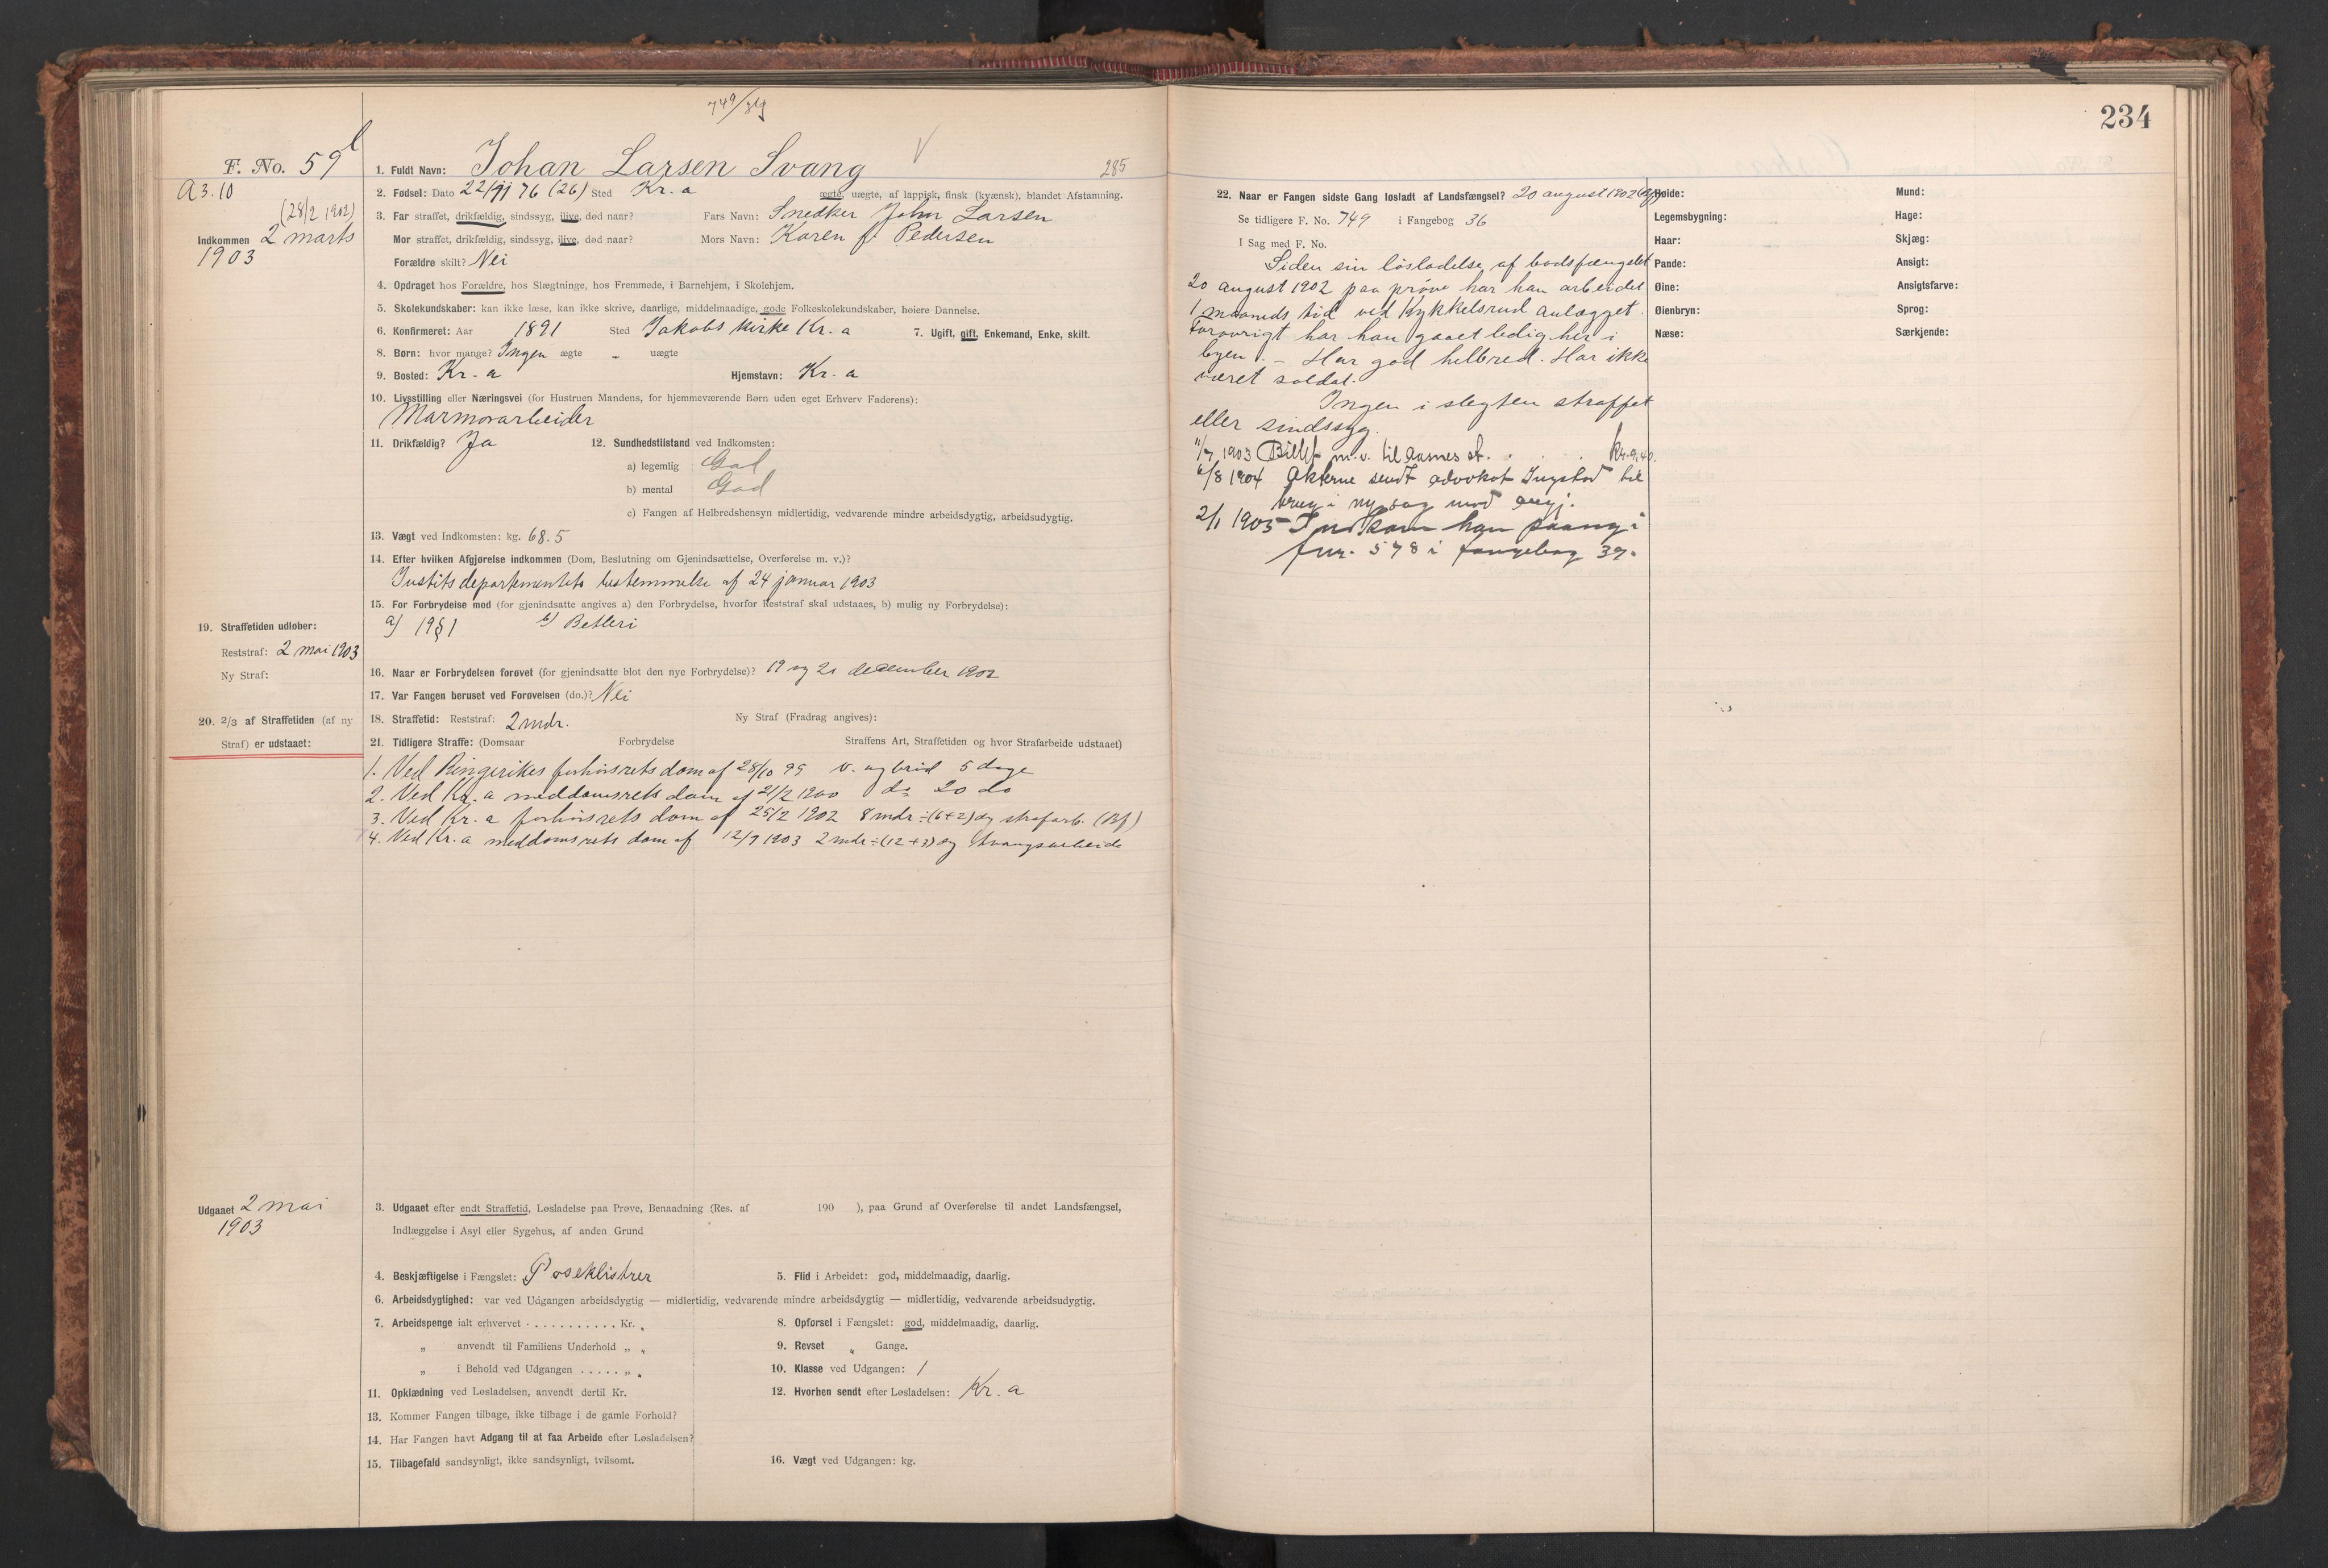 749/
234
F. No. 59
1. Fuldt Navn: Johan Larsen Svang
285
A 3.10
2. Fødsel: Dato 22/11 76 (26) Sted Kr. a ægte, uægte, af lappisk, finsk (kvænsk), blandet Afstamning.
(28/2 1902)
3. Far straffet, drikfældig, sindssyg, ilive, død naar? Fars Navn: Snedker John Larsen
Indkommen 2 marts
1903
Mor straffet, drikfældig, sindssyg, ilive, død naar? Mors Navn: Karen f. Pedersen
Forældre skilt? Nei
4. Opdraget hos Forældre, hos Slægtninge, hos Fremmede, i Barnehjem, i Skolehjem.
5. Skolekundskaber: kan ikke læse, kan ikke skrive, daarlige, middelmaadige, gode Folkeskolekundskaber, høiere Dannelse.
6. Konfirmeret: Aar 1891 Sted Jakobs kirke Kr. a 7. Ugift, gift, Enkemand, Enke, skilt.
8. Børn: hvor mange? Ingen ægte „ uægte
9. Bosted: Kr. a Hjemstavn: Kr. a
10. Livsstilling eller Næringsvei (for Hustruen Mandens, for hjemmeværende Børn uden eget Erhverv Faderens):
Marmorarbeider
11. Drikfældig? Ja 12. Sundhedstilstand ved Indkomsten:
a) legemlig God
b) mental God
c) Fangen af Helbredshensyn midlertidig, vedvarende mindre arbeidsdygtig, arbeidsudygtig.
13. Vægt ved Indkomsten: kg. 68.5
14. Efter hvilken Afgjørelse indkommen (Dom, Beslutning om Gjenindsættelse, Overførelse m. v.)?
Justitsdepartementets bestemmelse af 24 januar 1903
15. For Forbrydelse mod (for gjenindsatte angives a) den Forbrydelse, hvorfor Reststraf skal udstaaes, b) mulig ny Forbrydelse):
a) 19 § 1 b) Betleri
19. Straffetiden udløber:
Reststraf: 2 mai 1903
Ny Straf:
16. Naar er Forbrydelsen forøvet (for gjenindsatte blot den nye Forbrydelse)? 19 og 21 december 1902
17. Var Fangen beruset ved Forøvelsen (do.)? Nei
20. 2/3 af Straffetiden (af ny
Straf) er udstaaet:
18. Straffetid: Reststraf: 2 mdr. Ny Straf (Fradrag angives):
21. Tidligere Straffe: (Domsaar Forbrydelse Straffens Art, Straffetiden og hvor Strafarbeide udstaaet)
1. Ved Ringerikes forhørsrets dom af 28/10 99 v. og brød 5 dage
2. Ved Kr. a meddomsrets dom af 21/2 1900 do 20 do
3. Ved Kr. a forhørsrets dom af 25/2 1902 8 mdr ÷ (6+2) dg strafarb. (Bf)
4. Ved Kr. a meddomsrets dom af 12/9 1903 2 mdr ÷ (12+3) dg tvangsarbeide
Udgaaet 2 mai
1903
3. Udgaaet efter endt Straffetid, Løsladelse paa Prøve, Benaadning (Res. af 190 ), paa Grund af Overførelse til andet Landsfængsel,
Indlæggelse i Asyl eller Sygehus, af anden Grund
4. Beskjæftigelse i Fængslet: Poseklistrer 5. Flid i Arbeidet: god, middelmaadig, daarlig.
6. Arbeidsdygtighed: var ved Udgangen arbeidsdygtig — midlertidig, vedvarende mindre arbeidsdygtig — midlertidig, vedvarende arbeidsudygtig.
7. Arbeidspenge ialt erhvervet . . . . . . . . . . . Kr. „ 8. Opførsel i Fængslet: god, middelmaadig, daarlig.
„ anvendt til Familiens Underhold „ „ 9. Revset „ Gange.
„ i Behold ved Udgangen . . . . . „ „ 10. Klasse ved Udgangen: 1
11. Opklædning ved Løsladelsen, anvendt dertil Kr. 12. Hvorhen sendt efter Løsladelsen: Kr. a
13. Kommer Fangen tilbage, ikke tilbage i de gamle Forhold?
14. Har Fangen havt Adgang til at faa Arbeide efter Løsladelsen?
15. Tilbagefald sandsynligt, ikke sandsynligt, tvilsomt. 16. Vægt ved Udgangen: kg.
22. Naar er Fangen sidste Gang løsladt af Landsfængsel? 20 august 1902
Se tidligere F. No. 749 i Fangebog 36
I Sag med F. No.
Siden sin løsladelse af bodsfængslet
20 august 1902 paa prøve har han arbeidet
1 maaneds tid ved Kykkelsrud anlægget.
Forøvrigt har han gaaet ledig her i
byen. – Har god helbred. Har ikke
været soldat.
Ingen i slegten straffet
eller sindssyg.
11/7 1903 Billet m. v. til Aasnes st. . . . kr. 9,40.
6/8 1904 Akterne sendt advokat Ingstad til
brug i ny sag mod angj.
2/1 1905 Indkom han paany i
fnr. 578 i fangebog 39.
Høide: Mund:
Legemsbygning: Hage:
Haar: Skjæg:
Pande: Ansigt:
Øine: Ansigtsfarve:
Øienbryn: Sprog:
Næse: Særkjende: